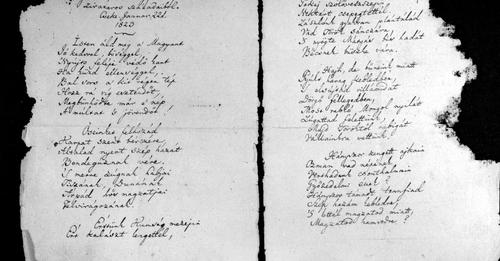 zivataros századaiból
Cseke Januar. 22d.
1823
Isten áldd meg a Magyart
Jó kedvvel, bőséggel,
Nyújts feléje védő kart
Ha küzd ellenséggel;
Bal sors a kit régen tép
Hozz rá víg esztendőt,
Megbünhödte már e nép
A' multat 's jövendőt!
Őseinket felhozád
Kárpát szent bérczére,
Általad nyert szép hazát
Bendegúznak vére.
'S merre zúgnak habjai
Tiszának, Dunának
Árpád hős magzatjai
Felvirágozának.
Értünk Kunság mezején
Ért kalászt lengettél,
Tokaj szőlővesszein
Nektárt csepegtettél.
Zászlónk gyakran plántálád
Vad török sánczára,
'S nyögte Mátyás bús hadát
Bécsnek büszke vára.
Hajh, de bűneink miatt
Gyúlt harag kebledben,
'S elsújtád villámidat
Dörgő fellegedben,
Most rabló Mongol nyilát
Zúgattad felettünk,
Majd töröktől rabigát
Vállainkra vettünk.
Hányszor zengett ajkain
Ozman vad népének
Vert hadunk csonthalmain
Győzedelmi ének!
Hányszor támadt tenfiad
Szép hazám kebledre,
'S lettél magzatod miatt
Magzatod hamvedre!